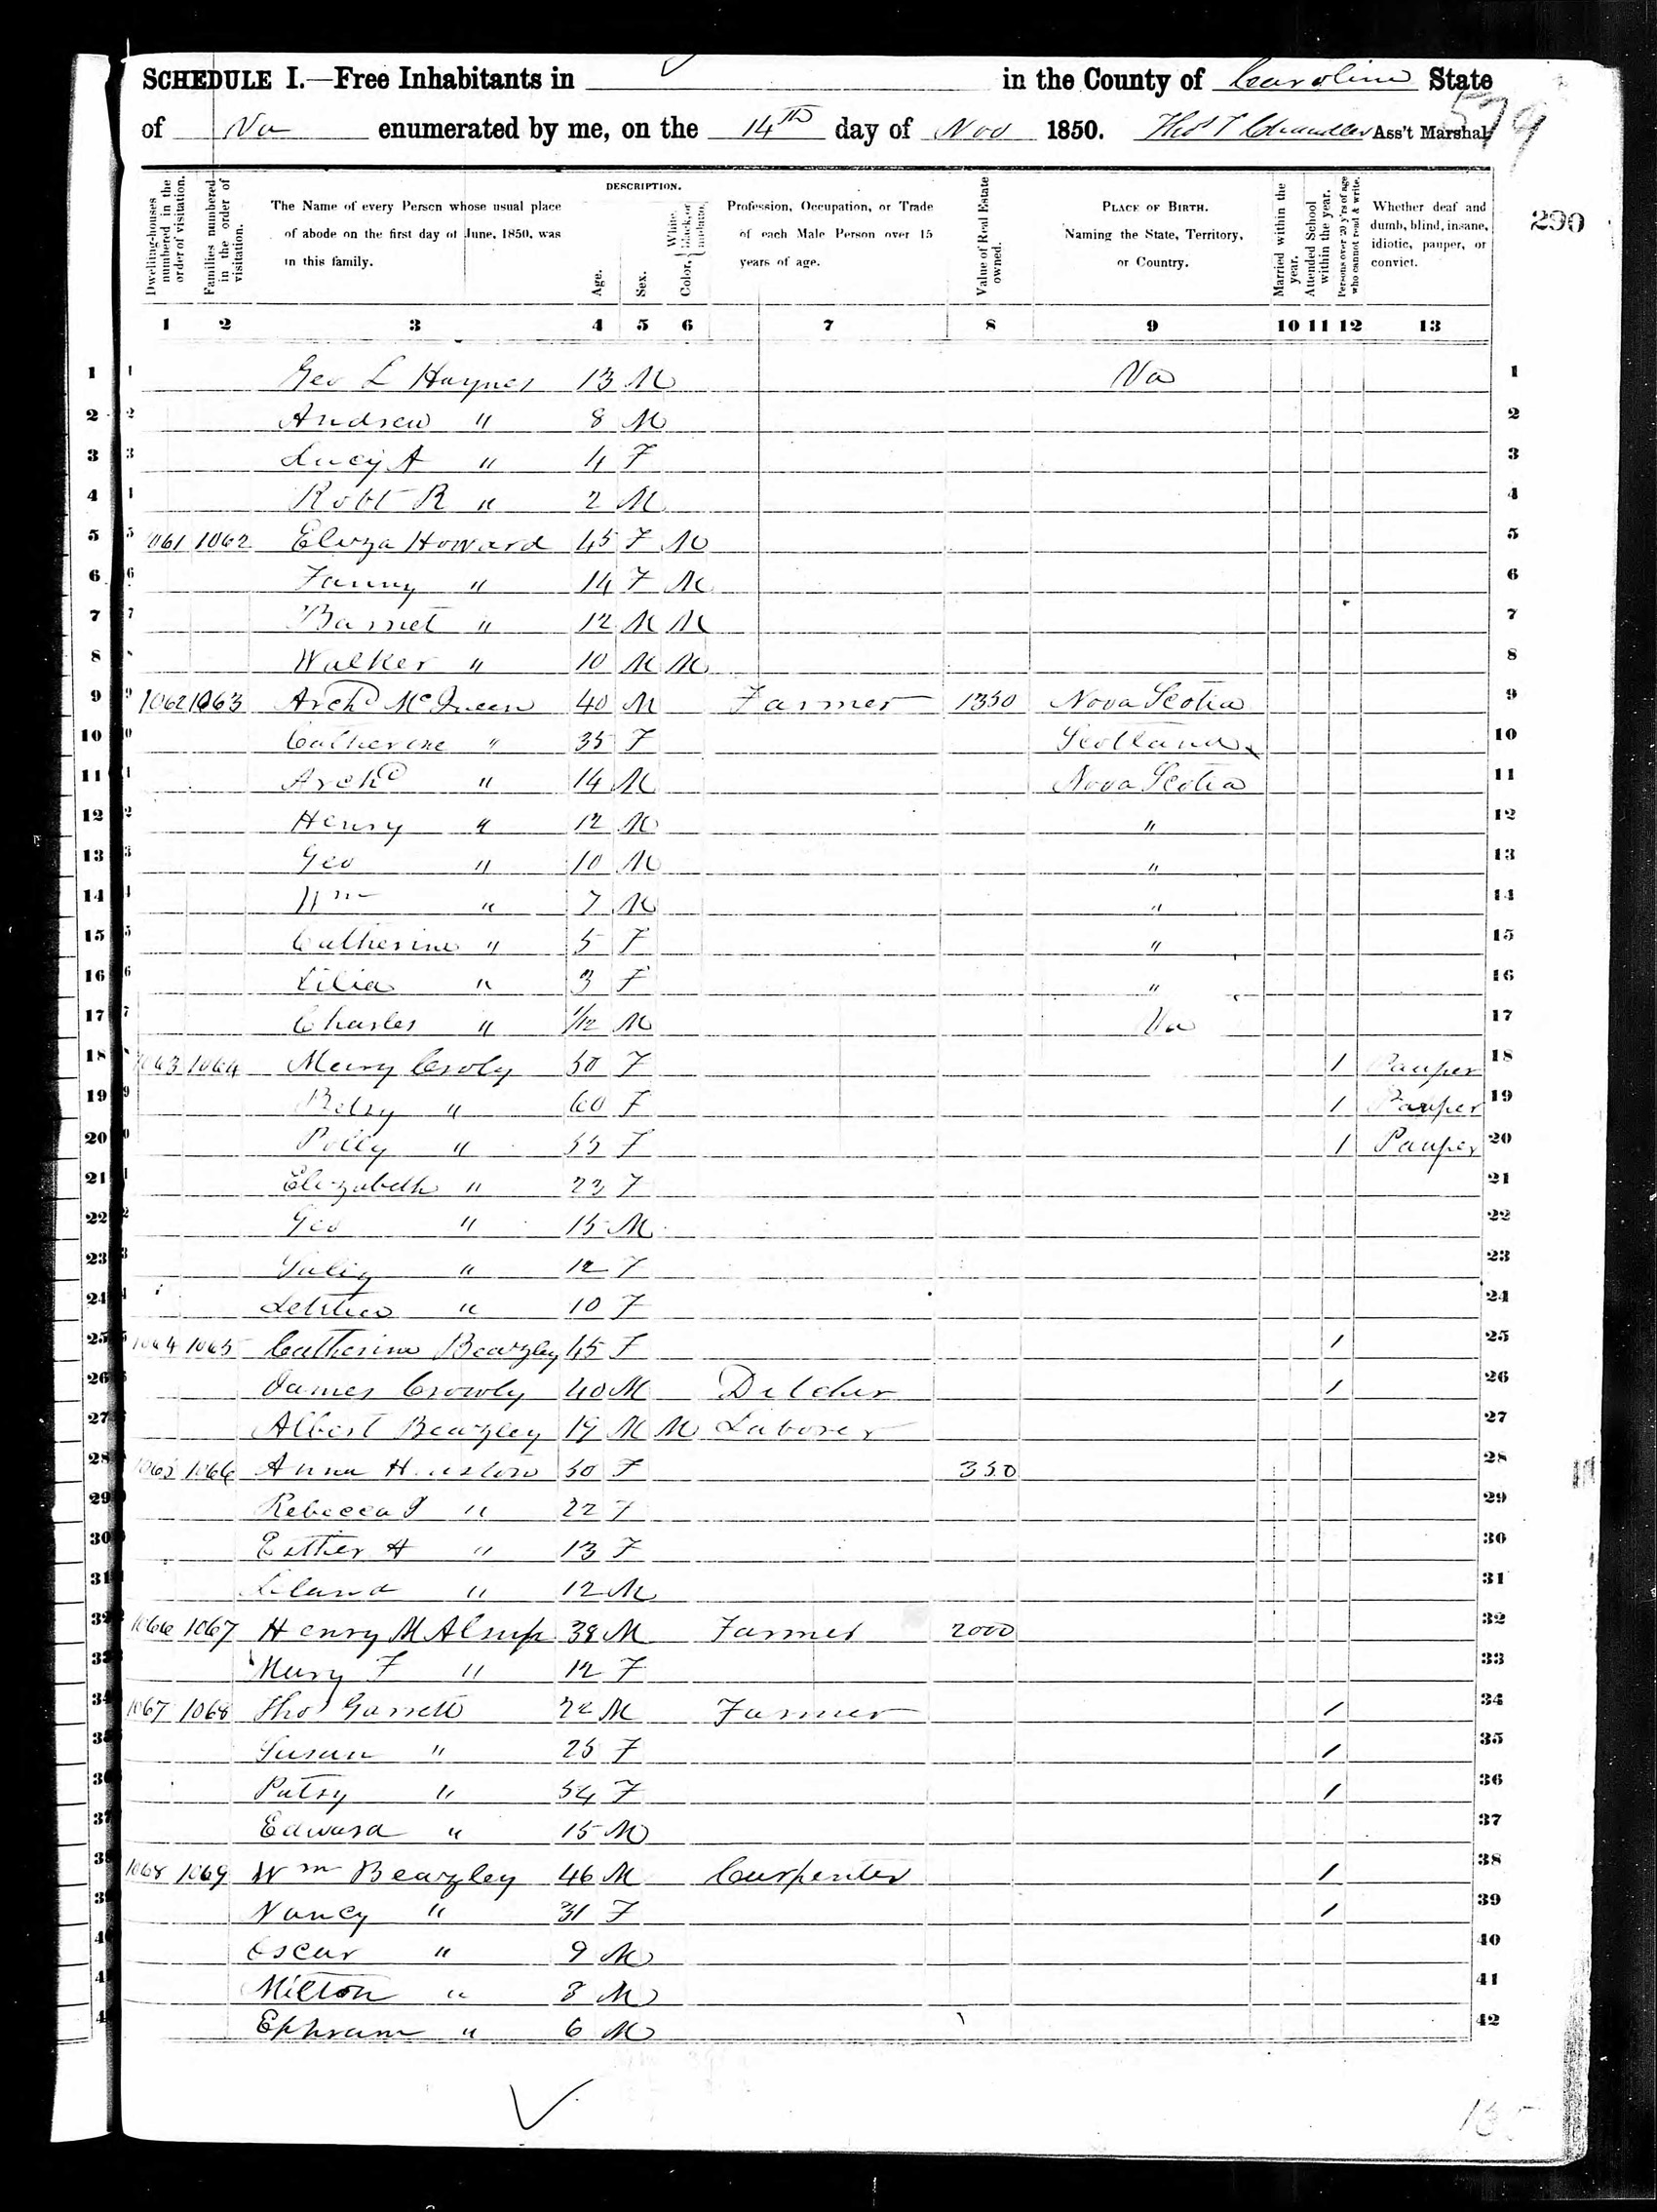 SCHEDULE I.—Free Inhabitants in in the County of Caroline State
579
of Va enumerated by me, on the 14th day of Nov 1850. Thos T Chandler Ass't Marshal.
290
Dwelling-houses numbered in the order of visitation.
Families numbered in the order of visitation.
The Name of every Person whose usual place of abode on the first day of June, 1850, was in this family.
DESCRIPTION.
Age.
Sex.
Color, White, black, or mulatto.
Profession, Occupation, or Trade of each Male Person over 15 years of age.
Value of Real Estate owned.
PLACE OF BIRTH. Naming the State, Territory, or Country.
Married within the year.
Attended School within the year.
Persons over 20 y'rs of age who cannot read & write.
Whether deaf and dumb, blind, insane, idiotic, pauper, or convict.
1 2 3 4 5 6 7 8 9 10 11 12 13
1 Geo L Haynes 13 M Va 1
2 Andrew " 8 M 2
3 Lucy A " 4 F 3
4 Robt R " 2 M 4
5 1061 1062 Eliza Howard 45 F M 5
6 Fanny " 14 F M 6
7 Barnet " 12 M M 7
8 Walker " 10 M M 8
9 1062 1063 Archd McQueen 40 M Farmer 1350 Nova Scotia 9
10 Catherine " 35 F Scotland 10
11 Archd " 14 M Nova Scotia 11
12 Henry " 12 M " 12
13 Geo " 10 M " 13
14 Wm " 7 M " 14
15 Catherine " 5 F " 15
16 Lilia " 3 F " 16
17 Charles " 1/12 M Va 17
18 1063 1064 Mary Croly 50 F 1 Pauper 18
19 Betsy " 60 F 1 Pauper 19
20 Polly " 55 F 1 Pauper 20
21 Elizabeth " 23 F 21
22 Geo " 15 M 22
23 " 12 F 23
24 Letitia " 10 F 24
25 1064 1065 Catherine Beazley 45 F 1 25
26 James Crowly 40 M Ditcher 1 26
27 Albert Beazley 19 M M Laborer 27
28 1065 1066 Anna Huston 50 F 350 28
29 Rebecca J " 22 F 29
30 Esther H " 13 F 30
31 Leland " 12 M 31
32 1066 1067 Henry M Alsup 38 M Farmer 2000 32
33 Mary F " 12 F 33
34 1067 1068 Thos Garrett 22 M Farmer 1 34
35 Susan " 25 F 1 35
36 Patsy " 54 F 1 36
37 Edward " 15 M 37
38 1068 1069 Wm Beazley 46 M Carpenter 1 38
39 Nancy " 31 F 1 39
40 Oscar " 9 M 40
41 Milton " 8 M 41
42 Ephram " 6 M 42